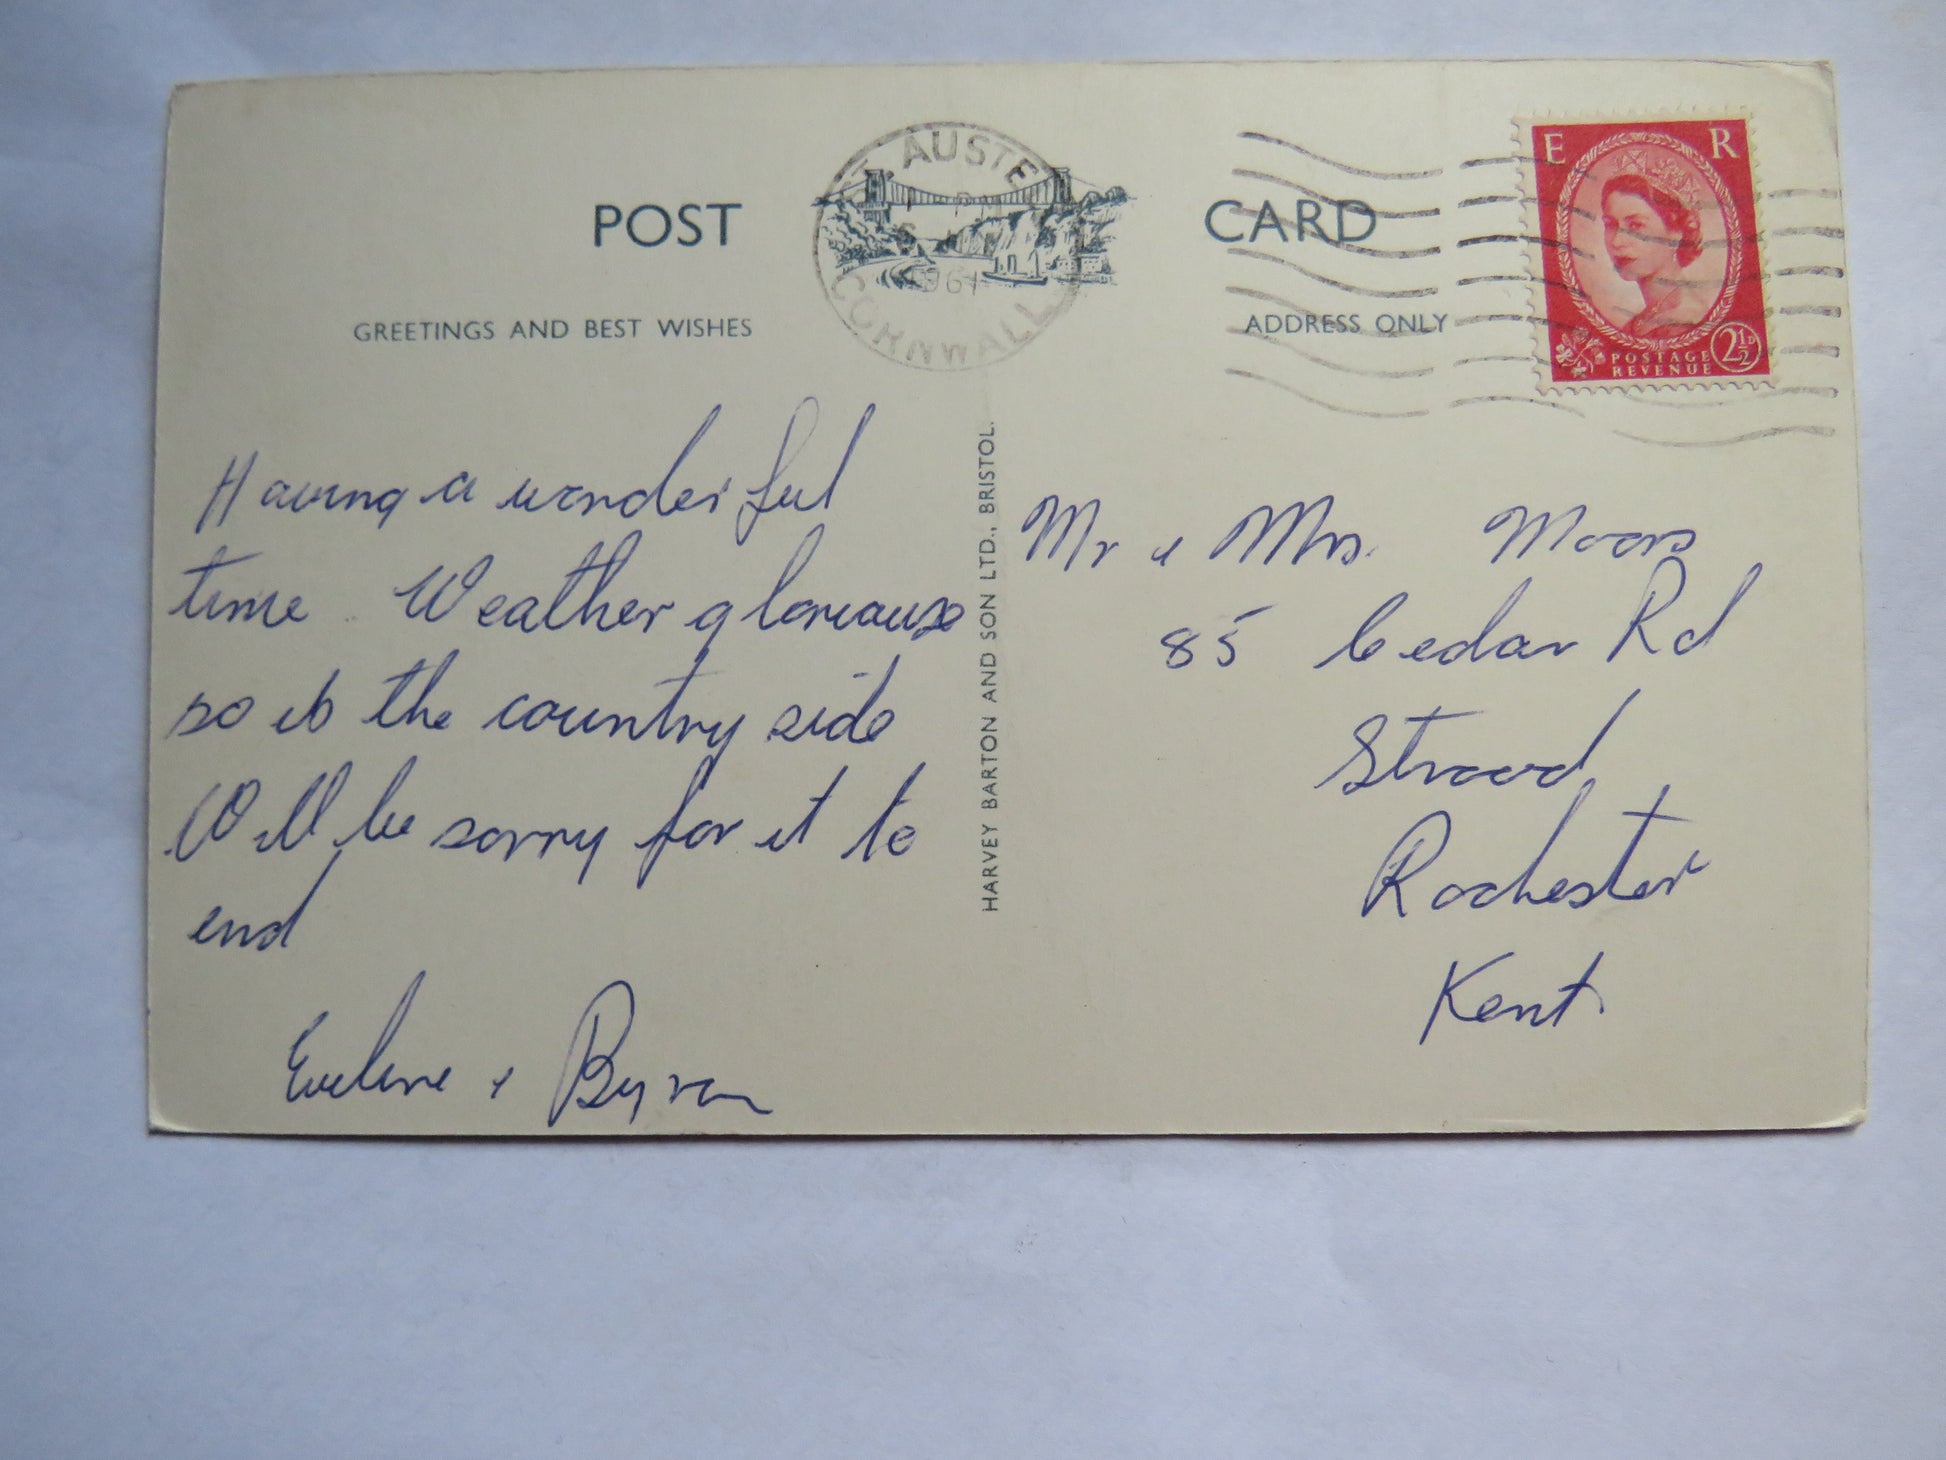 POST CARD
ST. AUSTE
CORNWALL
1961
GREETINGS AND BEST WISHES
ADDRESS ONLY
E R
POSTAGE
REVENUE
2½D
Having a wonderful
time. Weather glorious
so is the country side
Will be sorry for it to
end
Evelene & Byron
HARVEY BARTON AND SON LTD., BRISTOL.
Mr & Mrs. Moors
85 Cedar Rd
Strood
Rochester
Kent